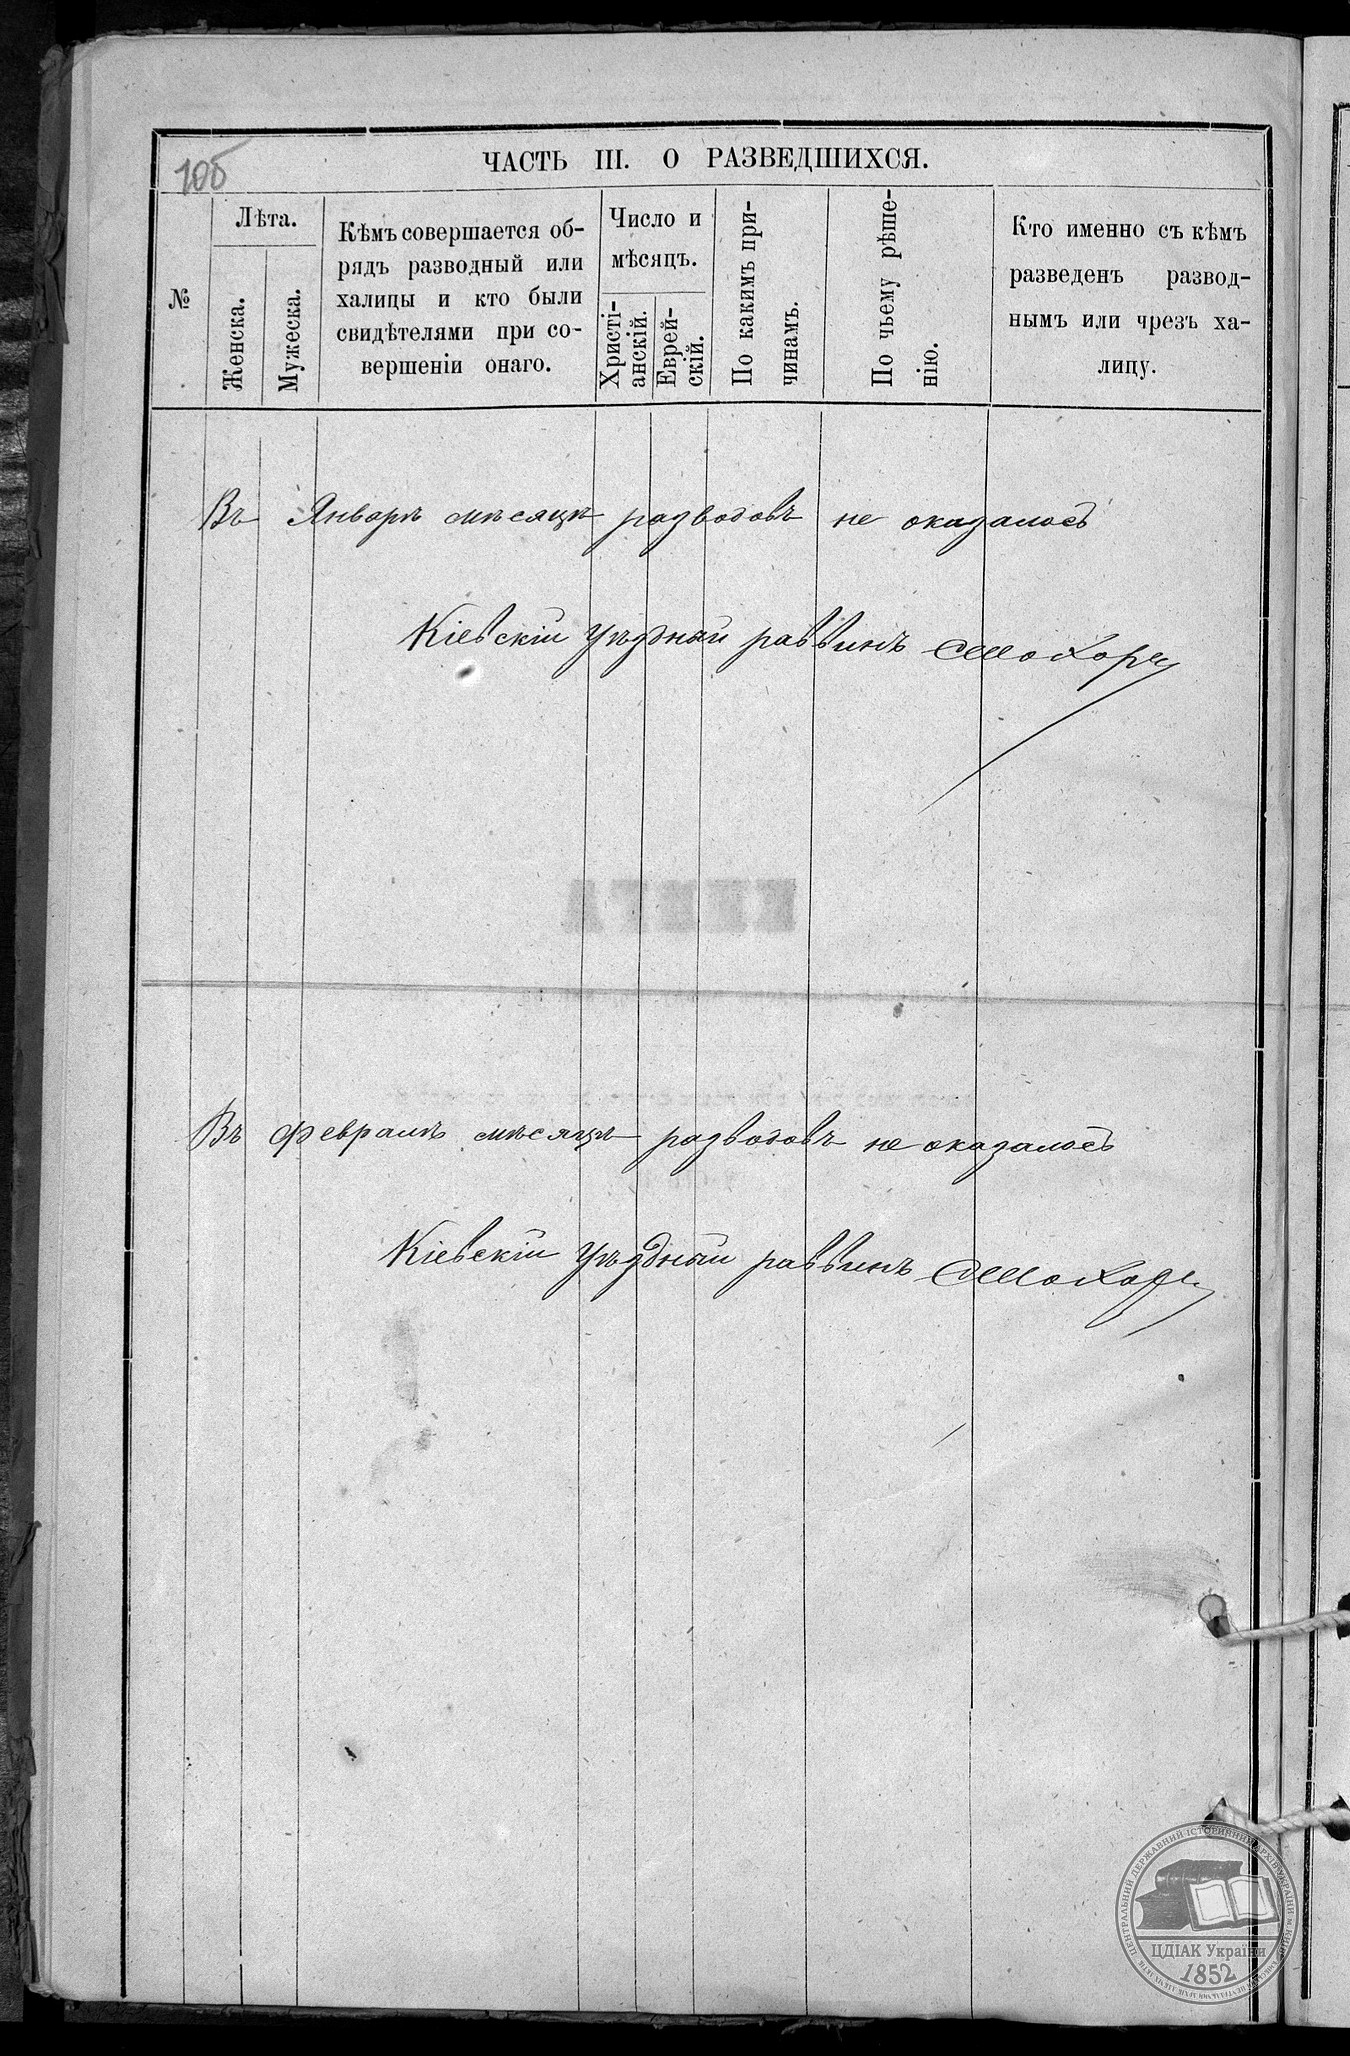 105
ЧАСТЬ III. О РАЗВЕДШИХСЯ.
№
Лѣта.
Женска.
Мужеска.
Кѣмъ совершается об-
рядъ разводный или
халицы и кто были
свидѣтелями при со-
вершеніи онаго.
Число и
мѣсяцъ.
Христі-
анскій.
Еврей-
скій.
По какимъ при-
чинамъ.
По чьему рѣше-
нію.
Кто именно съ кѣмъ
разведенъ развод-
нымъ или чрезъ ха-
лицу.
Въ Январѣ мѣсяцѣ разводовъ не оказалось
Кіевскій уѣздный раввинъ
Въ Февралѣ мѣсяцѣ разводовъ не оказалось
Кіевскій уѣздный раввинъ
КНИГА
ЦЕНТРАЛЬНИЙ ДЕРЖАВНИЙ ІСТОРИЧНИЙ АРХІВ УКРАЇНИ
ЦДІАК України
1852